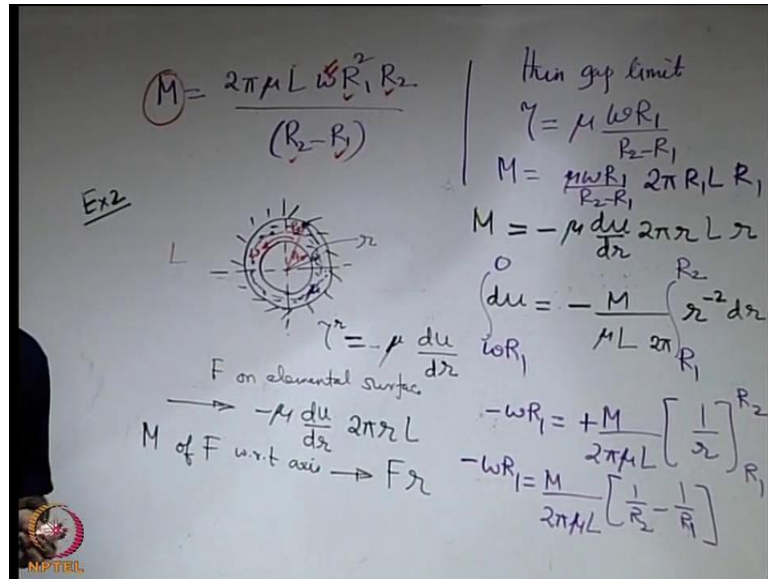 M = 2πμL ωR₁²R₂ / (R₂-R₁)
Ex2
L
r
τ = -μ du/dr
F on elemental surface
→ -μ du/dr 2πrL
M of F w.r.t axis → Fr
thin gap limit
τ = μ ωR₁ / R₂-R₁
M = μωR₁ / R₂-R₁ 2πR₁L R₁
M = -μ du/dr 2πrL r
∫_{ωR₁}^{0} du = - M / μL 2π ∫_{R₁}^{R₂} r⁻² dr
-ωR₁ = + M / 2πμL [1/r]_{R₁}^{R₂}
-ωR₁ = M / 2πμL [1/R₂ - 1/R₁]
NPTEL